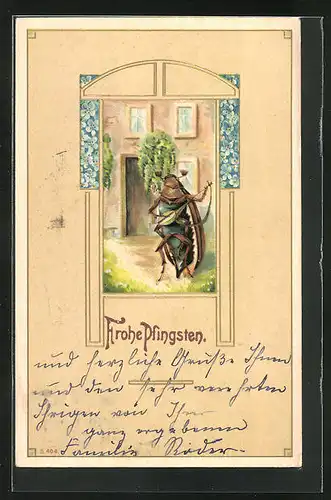 Frohe Pfingsten.
und herzliche Grüße Ihnen
und den sehr verehrten
Ihrigen von Ihrer
ganz ergebenen
Familie Röder.